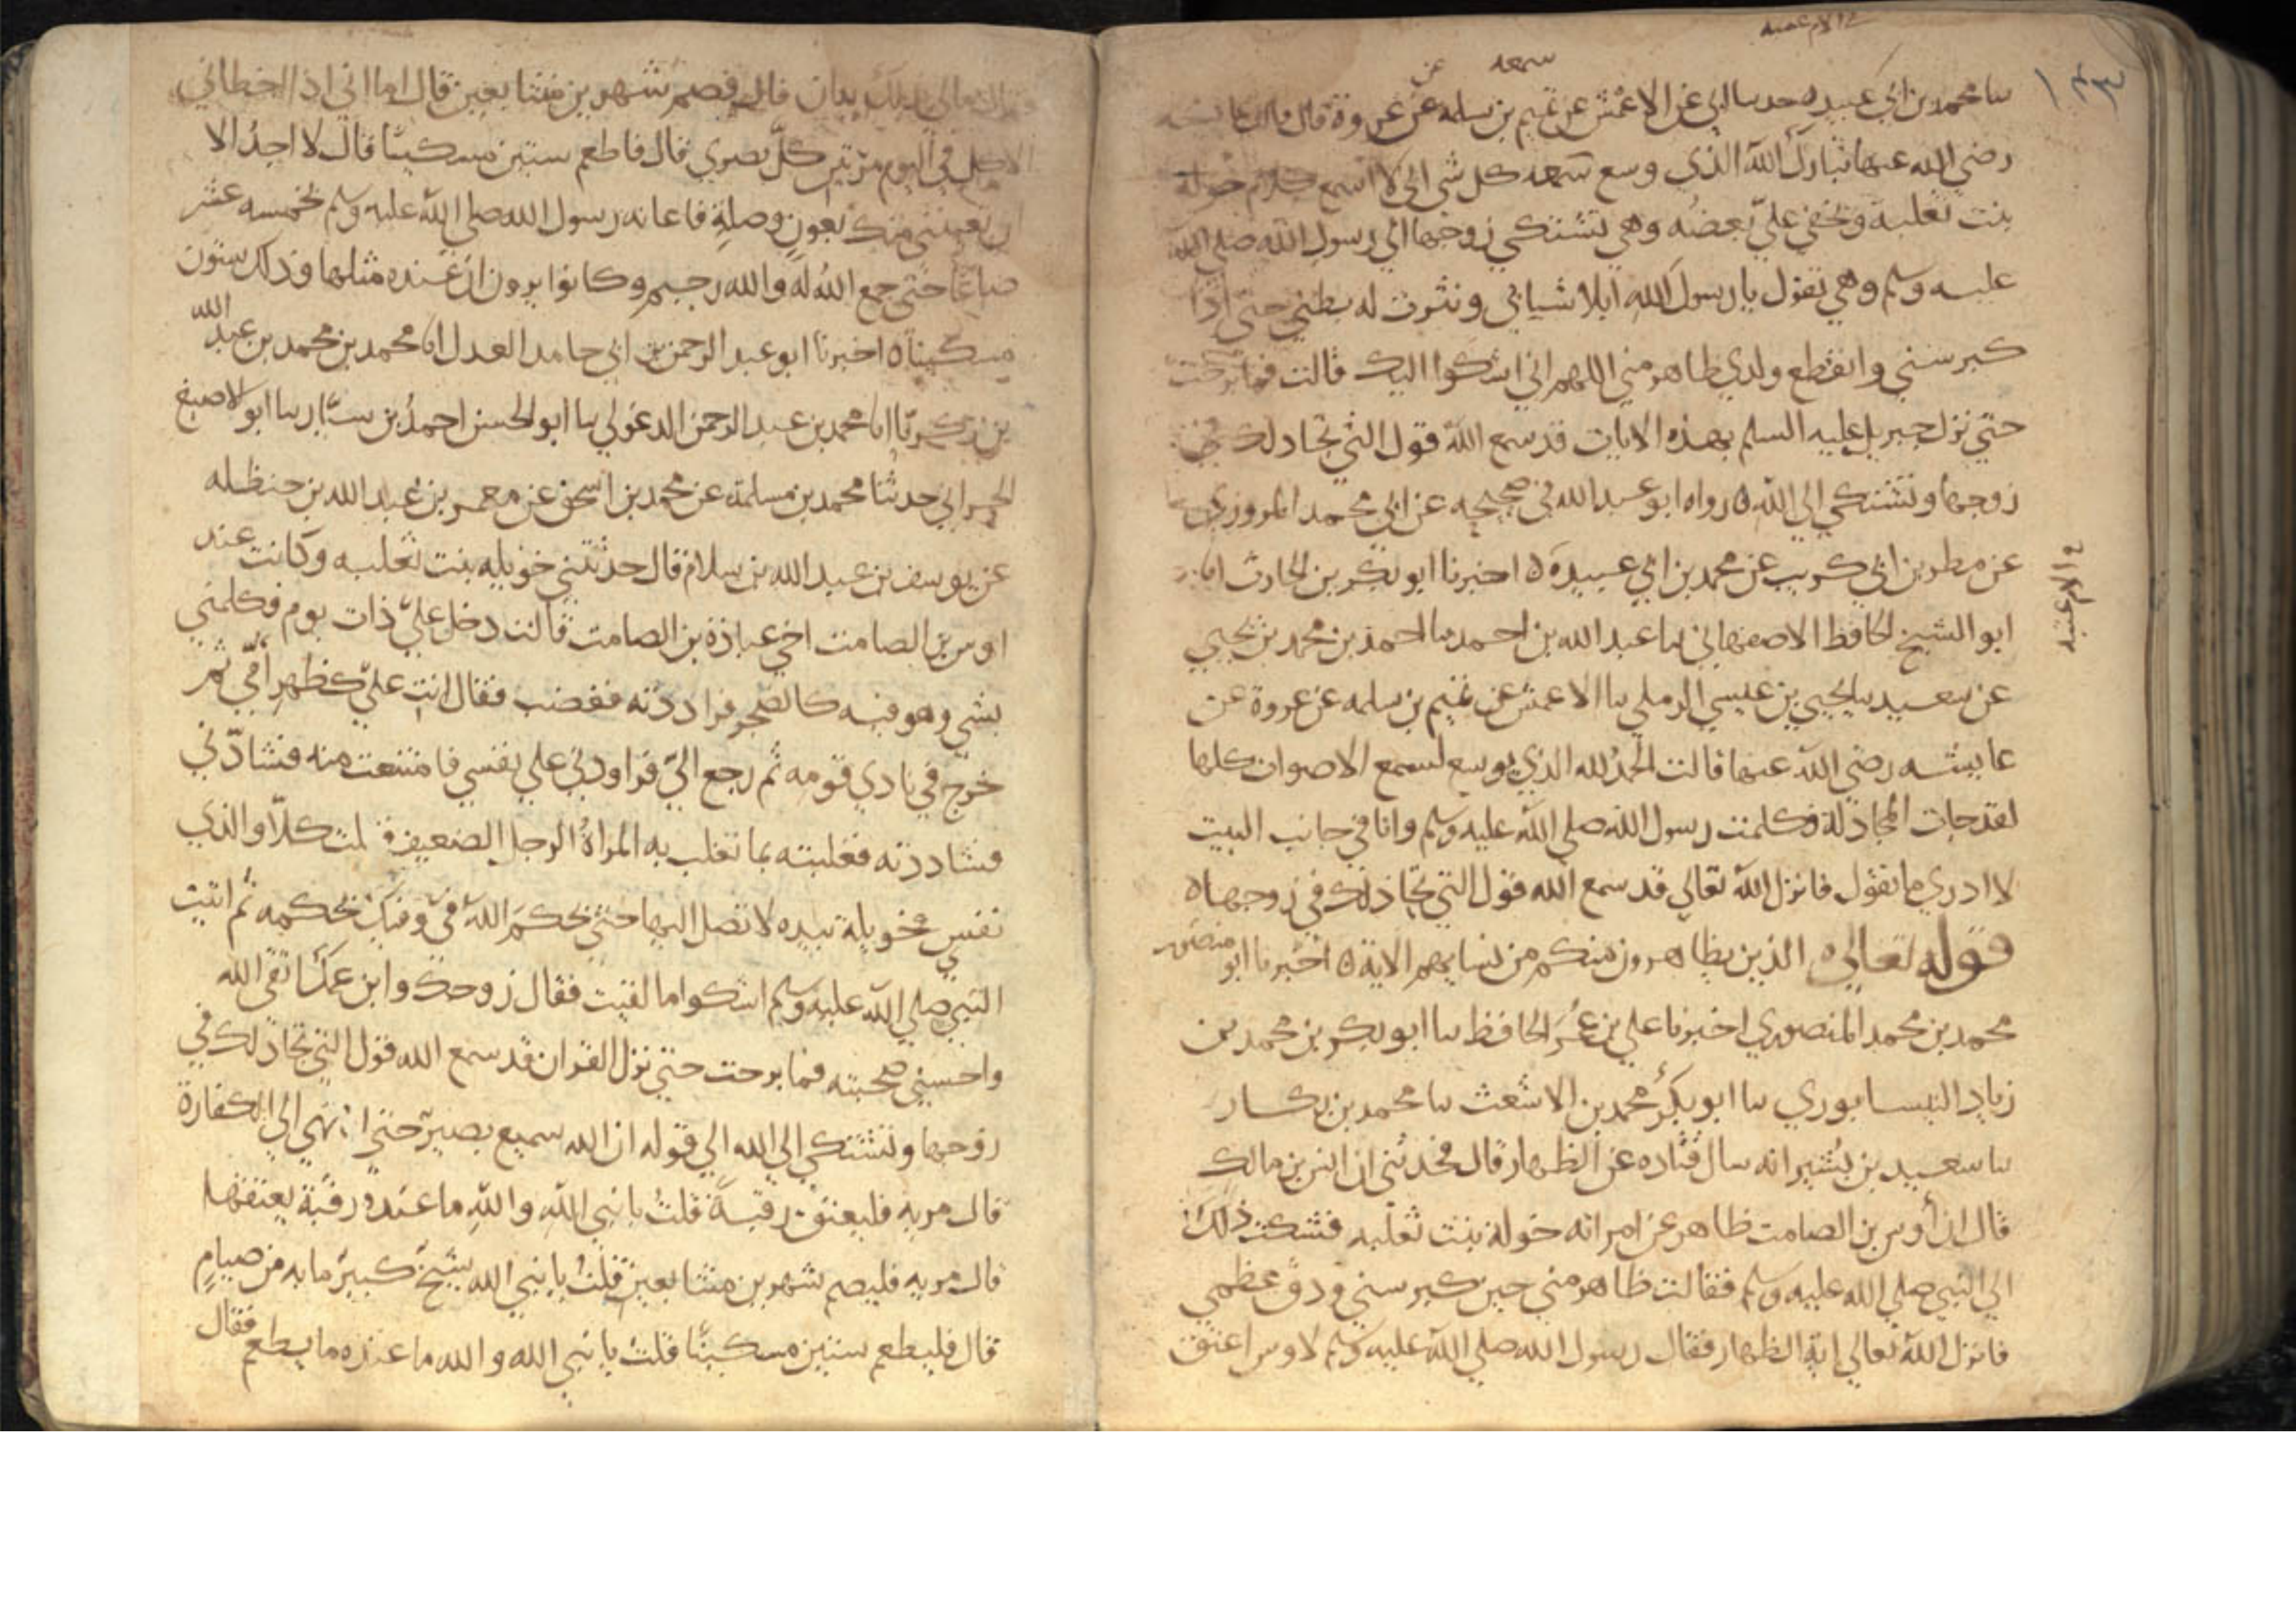 سا محمد بن ابي عبيده حدسا ابي عن الاعمش عن تميم بن سلمه عن عروة قال قالت عايشه
رضي الله عنها تبارك الله الذي وسع سمعه كل شي اني لا اسمع كلام خولة
بنت ثعلبة ويخفى علي بعضه وهي تشتكي زوجها الي رسول الله صلي الله
عليه وسلم وهي تقول يا رسول الله ابلا شبابي ونثرت له بطني حتي اذا
كبر سني وانقطع ولدي ظاهر مني اللهم اني اشكوا اليك قالت فما برحت
حتي نزل جبريل عليه السلم بهذه الايات قد سمع الله قول التي تجادلك في
زوجها وتشتكي الي الله ه رواه ابو عبد الله في صحيحه عن ابي محمد المزوزي
عن مطر بن ابي كريب عن محمد بن ابي عبيدة ه اخبرنا ابو بكر بن الحارث انا
ابو الشيخ الحافظ الاصفهاني سا عبد الله بن احمد سا احمد بن محمد بن يحيي
عن سعيد سا يحيي بن عيسي الرملي سا الاعمش عن تميم بن سلمه عن عروة عن
عايشه رضي الله عنها قالت الحمد لله الذي يوسع لسمع الاصوات كلها
لقد جات المجادلة فكلمت رسول الله صلي الله عليه وسلم وانا في جانب البيت
لا ادري ما تقول فانزل الله تعالي قد سمع الله قول التي تجادلك في زوجها ه
قوله تعالي الذين يظاهرون منكم من نسايهم الاية ه اخبرنا ابو منصور
محمد بن محمد المنصوري اخبرنا علي بن عمر الحافظ سا ابو بكر بن محمد بن
زياد النيسابوري سا ابو بكر محمد بن الاشعث سا محمد بن بكار
سا سعيد بن بشير انه سال قتاده عن الظهار قال فحدثني ان انس بن مالك
قال ان أوس بن الصامت ظاهر عن امراته خولة بنت ثعلبه فشكت ذلك
الي النبي صلي الله عليه وسلم فقالت ظاهر مني حين كبر سني ودق عظمي
فانزل الله تعالي اية الظهار فقال رسول الله صلي الله عليه وسلم لاوس اعتق
قال فصم شهرين متتابعين قال اما اني اذا اخطاني
الاكل في اليوم مرتين كل بصري قال فاطعم ستين مسكينا قال لا اجد الا
ان تعينني منك بعون وصلة فاعانه رسول الله صلي الله عليه وسلم بخمسه عشر
صاعا حتي جمع الله له والله رحيم وكانوا يرون ان عنده مثلها وذلك ستون
مسكينا ه اخبرنا ابو عبد الرحمن بن ابي حامد العدل انا محمد بن محمد بن عبد الله
بن زكريا انا محمد بن عبد الرحمن الدغولي سا ابو الحسن احمد بن سيار سا ابو الاصبغ
الحراني حدثنا محمد بن مسلمة عن محمد بن اسحق عن معمر بن عبد الله بن حنظله
عن يوسف بن عبد الله بن سلام قال حدثتني خويله بنت ثعلبه وكانت عند
اوس بن الصامت اخي عبادة بن الصامت قالت دخل علي ذات يوم فكلمني
بشي وهو فيه كالضجر فراددته فغضب فقال انت علي كظهر امي ثم
خرج في نادي قومه ثم رجع الي فراودني علي نفسي فامتنعت منه فشادني
فشاددته فغلبته بما تغلب به المراة الرجل الضعيف فقلت كلا والذي
نفس خويلة بيده لا تصل اليها حتي يحكم الله في وفيك بحكمه ثم اتيت
النبي صلي الله عليه وسلم اشكوا ما لقيت فقال زوجك وابن عمك اتقي الله
واحسني صحبته فما برحت حتي نزل القران قد سمع الله قول التي تجادلك في
زوجها وتشتكي الي الله الي قوله ان الله سميع بصير حتي انتهي الي الكفارة
قال مريه فليعتق رقبة قلت يا نبي الله والله ما عنده رقبة يعتقها
قال مريه فليصم شهرين متتابعين قلت يا نبي الله شيخ كبير ما به من صيام
قال فليطعم ستين مسكينا قلت يا نبي الله والله ما عنده ما يطعم فقال